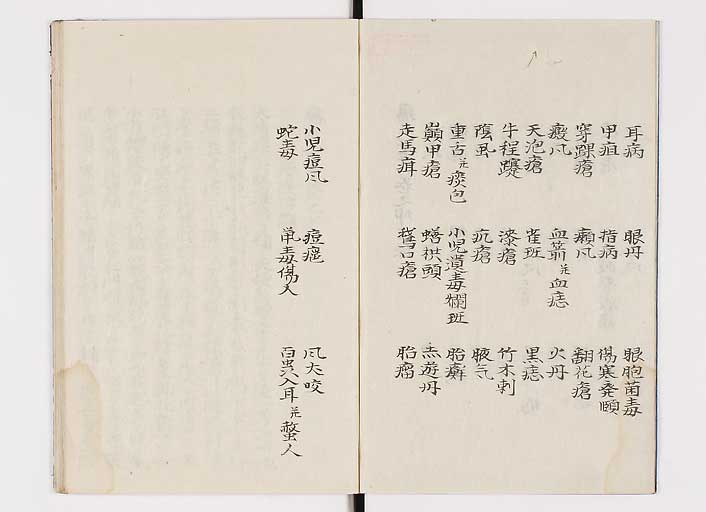 耳病 眼丹 眼胞菌毒
甲疽 指病 傷寒発頤
穿踝瘡 癩风 翻花瘡
风 血箭并血痣 火丹
天泡瘡 雀斑 黒痣
牛程蹇 漆瘡 竹木刺
陰虱 瘡 腋气
重舌并痰包 小児遺毒爛斑 胎癬
巓甲瘡 蟮拱頭 赤遊丹
走馬疳 鵞口瘡 胎瘤
小児痘风 痘疤 风犬咬
蛇毒 毒傷人 百虫入耳并螫人